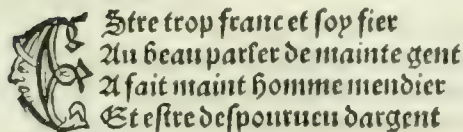 EStre trop franc et soy fier
Au beau parler de mainte gent
A fait maint homme mendier
Et estre despourueu dargent